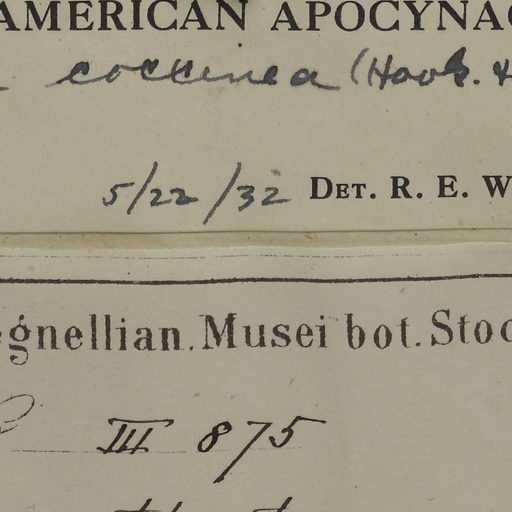 AMERICAN APOCYNAC
coccinea (Hook. &
5/22/32 DET. R. E. W
egnellian. Musei bot. Stoc
III 875